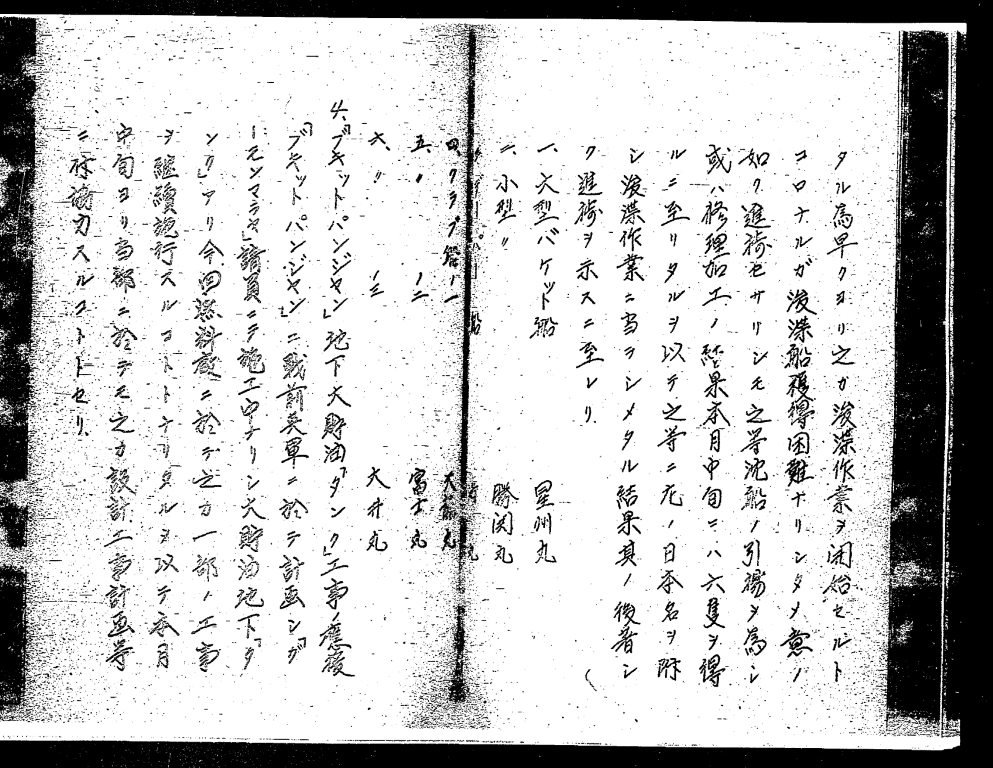 タル為早クヨリ之カ浚渫作業ヲ開始セルト
コロナルガ浚渫船獲得困難ナリシタメ意ノ
如ク進捗セサリシモ之等沈船ノ引揚ヲ為シ
或ハ修理加工ノ結果本月中旬ニハ六隻ヲ得
ルニ至リタルヲ以テ之等ニ左ノ日本名ヲ附
シ浚渫作業ニ当ラシメタル結果其ノ後着シ
ク進捗ヲ示スニ至レリ
一、大型バケット船 星州丸
二、小型〃 勝関丸
船 丸
四、クラブ船ノ一 大 丸
五、〃 ノ二 富士丸
六、〃 ノ三 大井丸
4、「ブキットパンジャン」地下大貯油「タンク」工事ノ應援
「ブキットパンジャン」ニ戦前英軍ニ於テ計画シ「ガ
ーモンマラヤ」請負ニテ施工中ナリシ大貯油地下「タ
ンク」アリ今回燃料廠ニ於テ之カ一部ノ工事
ヲ継續施行スルコトトナリタルヲ以テ本月
中旬ヨリ当部ニ於テモ之カ設計工事計画等
ニ 協力スルコトトセリ